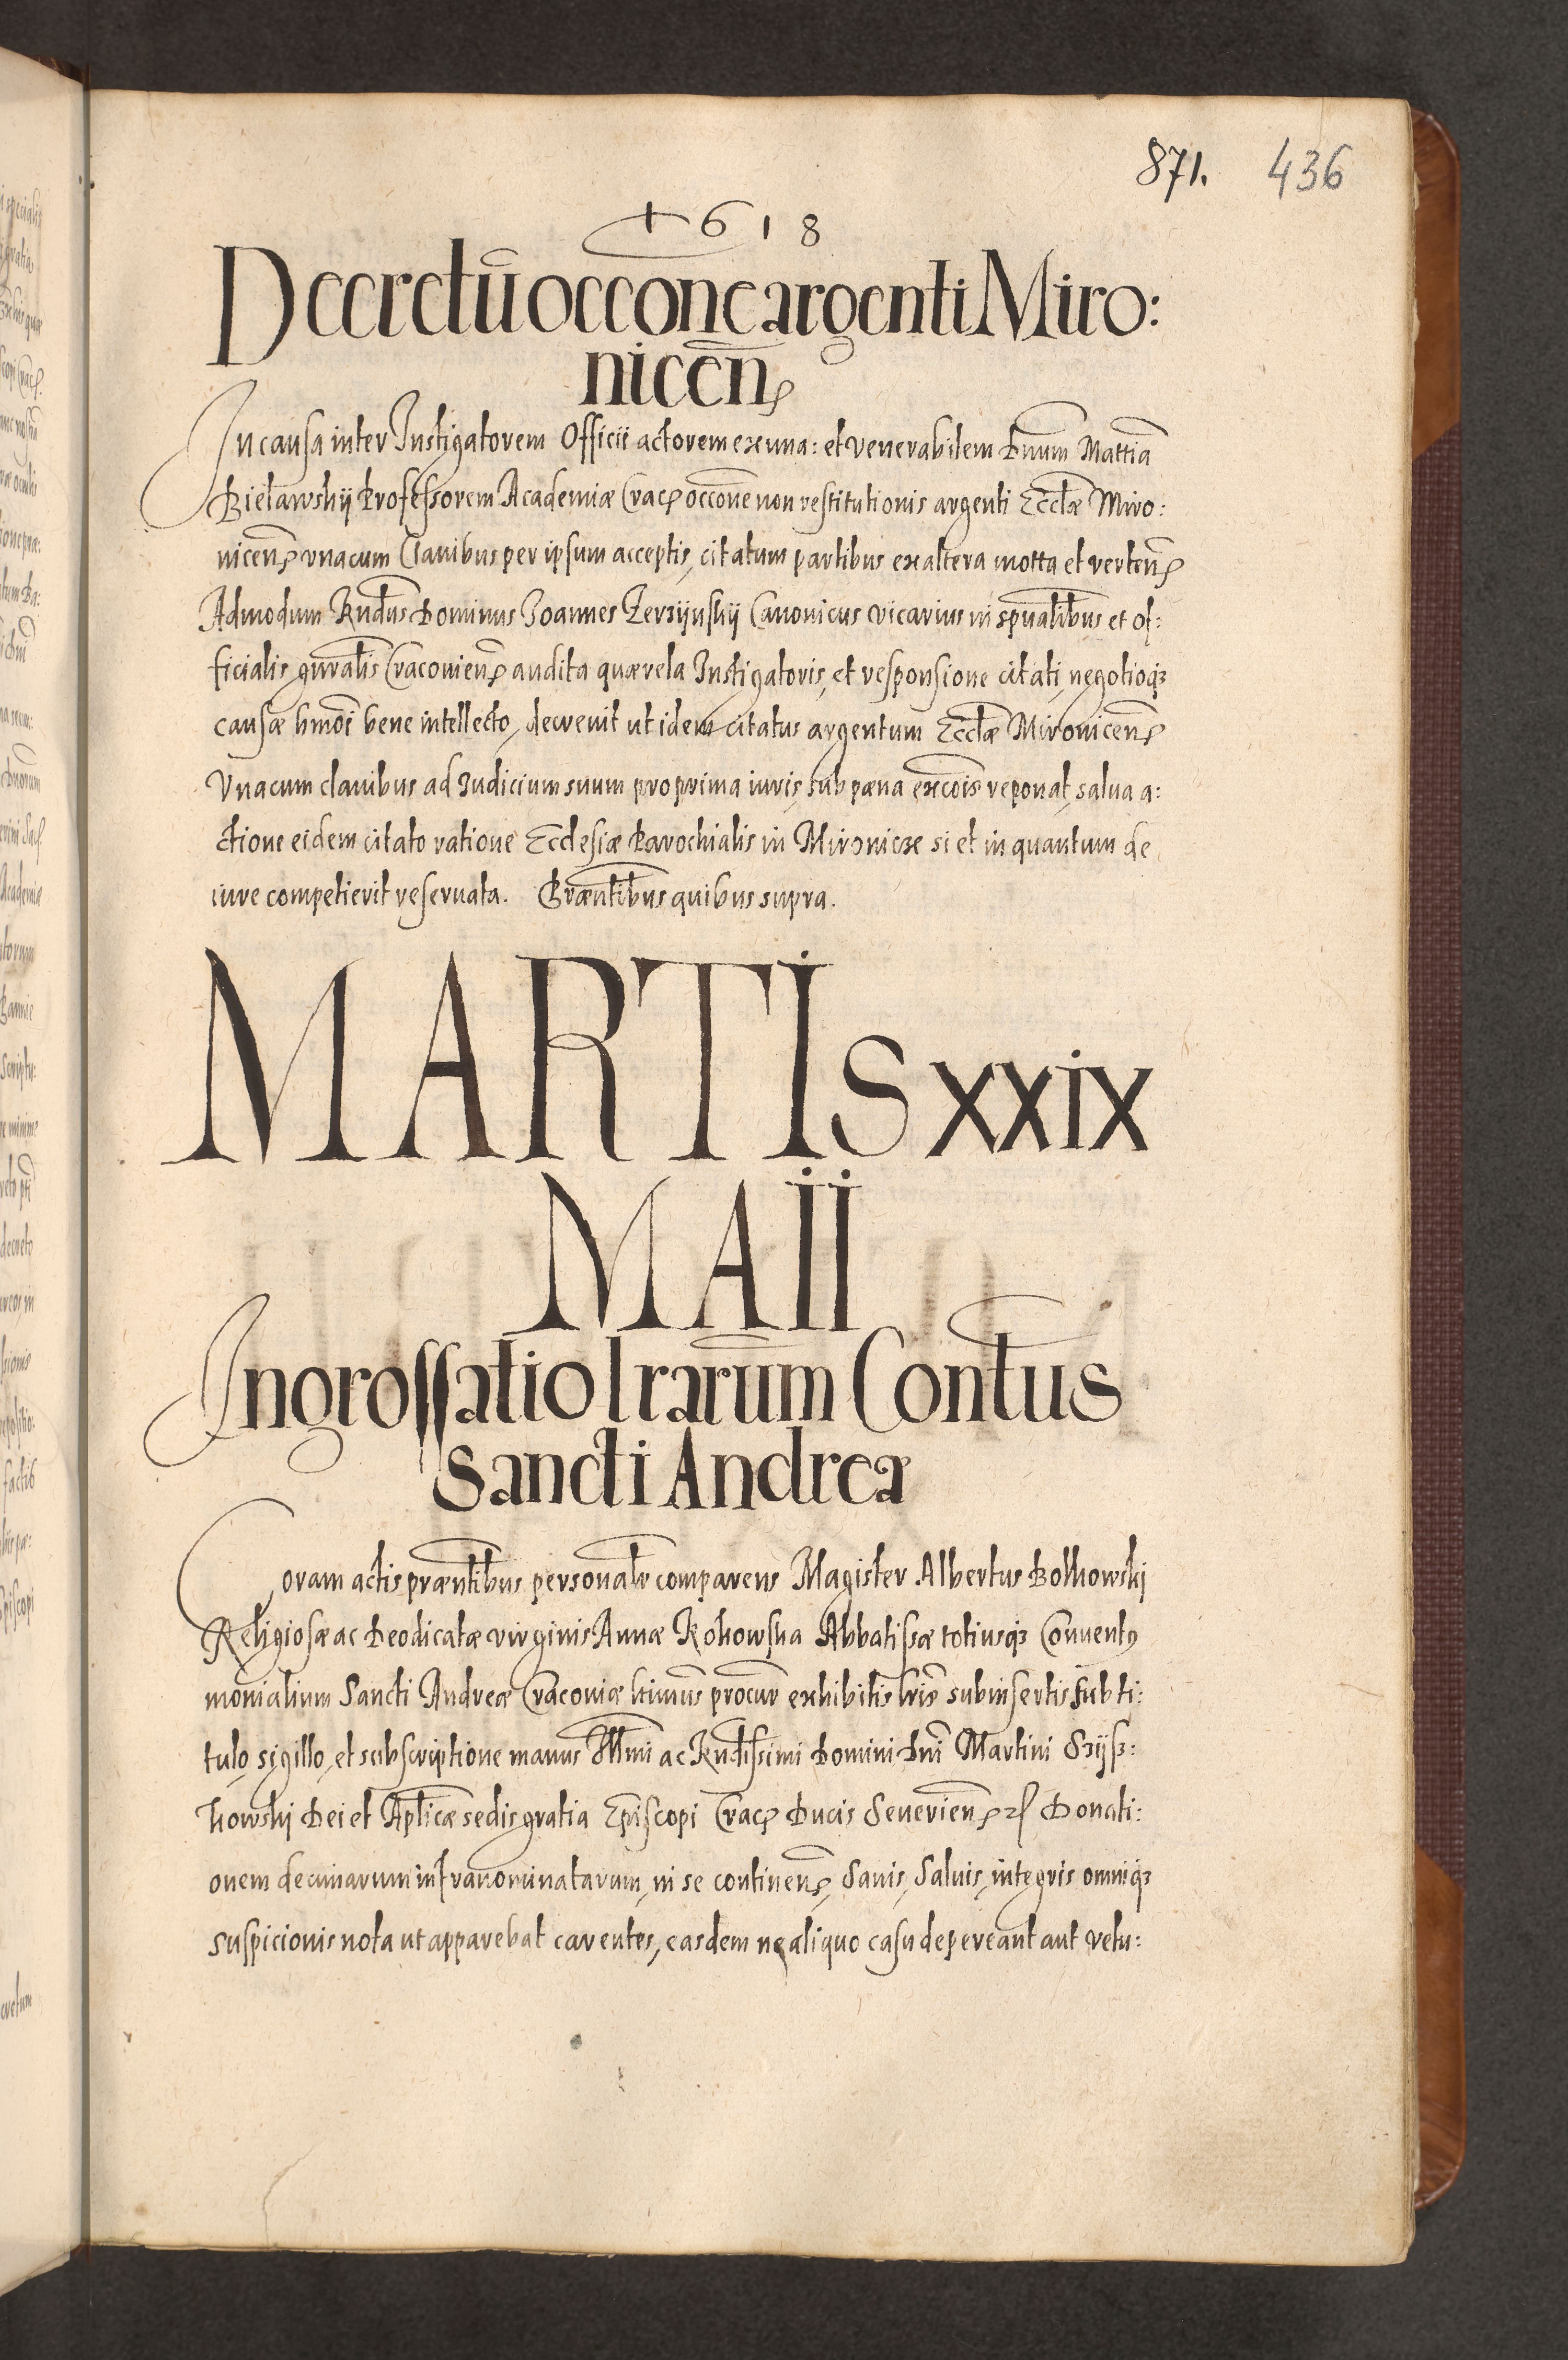 871. 436
1618
Decretū occone argenti Miro:
nicen̄
In causa inter Instigatorem Officii actorem ex una: et venerabilem Dnum Mattiā
Bielawskÿ Professorem Academiæ Crac occone non restitutionis argenti Ecctæ Miro:
nicen̄ vnacum Clauibus per ipsum acceptis, citatum partibus ex altera motta et verten̄
Admodum Rndus Dominus Joannes Zerzÿnskÿ Canonicus vicarius in spualibus et of:
ficialis gnralis Cracovien̄ audita quærela Instigatoris, et responsione citati, negotioq3
causæ hmoi bene intellecto, decrevit ut idem citatus argentum Ecctæ Mironicen̄
Vnacum clauibus ad Iudicium suum pro prima iuris, sub pæna excois reponat, salua a:
ctione eidem citato ratione Ecclesiæ Parochialis in Mironicze si et in quantum de
iure competierit reseruata. Præntibus quibus supra.
MARTIS XXIX
MAII
Ingrossatio lrarum Contus
Sancti Andreæ
Coram actis præntibus personalr comparens Magister Albertus Bolkowskj
Religiosæ ac Deodicatæ virginis Annæ Kokowska Abbatissæ totiusq3 Conuentq
monialium Sancti Andreæ Cracoviæ ltimus procur exhibitis lris subinsertis sub ti:
tulo, sigillo, et subscriptione manus Illmi ac Rndissimi Domini Dni Martini Szÿß:
kowskj Dei et Aplicæ sedis gratia Episcopi Crac Ducis Severien̄ Donati:
onem decimarum infranominatarum, in se continen̄, Sanis, Saluis, integris omniq3
suspicionis nota ut apparebat carentes, easdem ne aliquo casu depereant aut vetu: